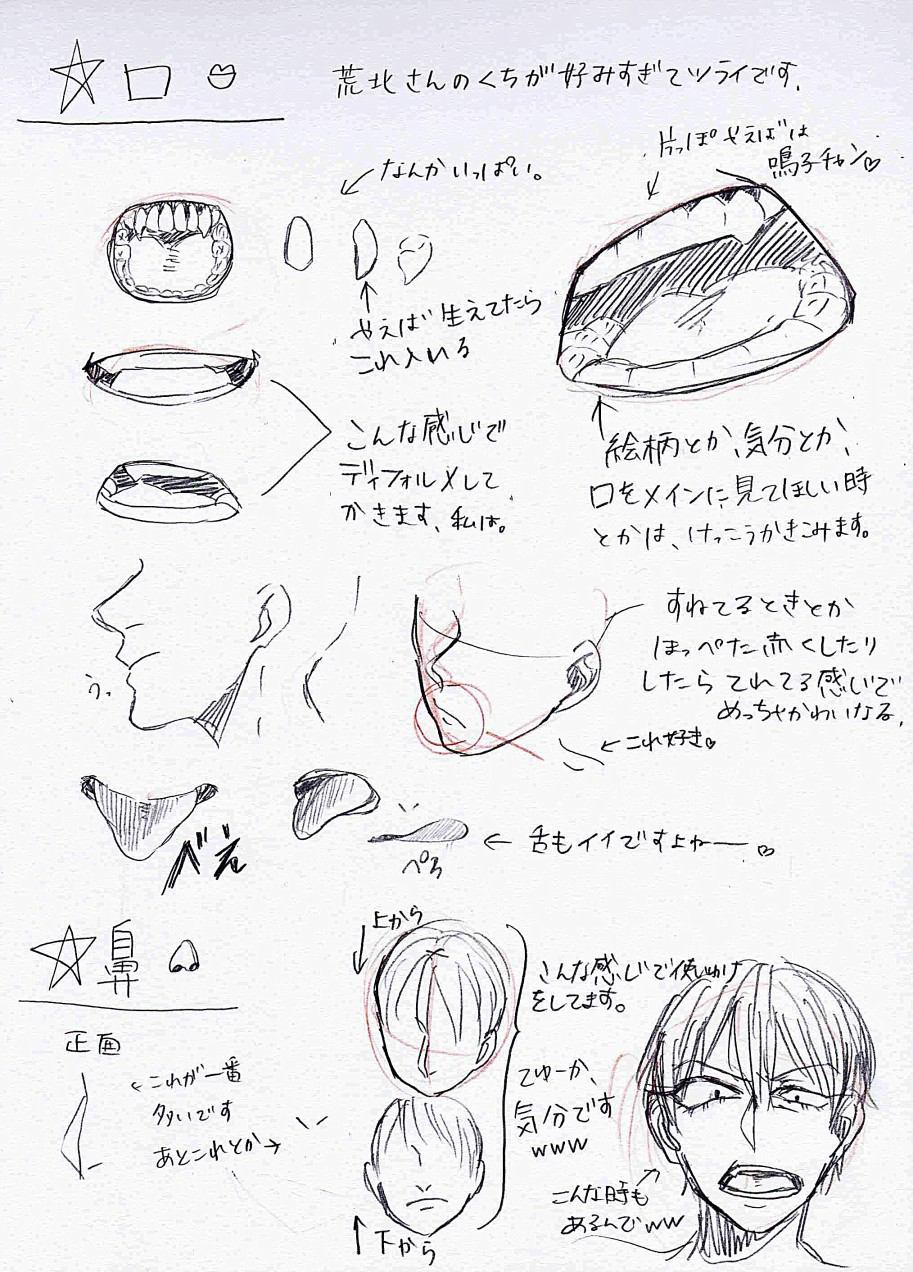 ☆口
荒北さんのくちが好みすぎてツライです.
片っぽやえばは
鳴子チャン♡
なんかいっぱい。
やえば生えてたら
これ入れる
こんな感じで
ディフォルメして
かきます、私は。
絵柄とか、気分とか、
口をメインに見てほしい時
とかは、けっこうかきこみます。
うっ
すねてるときとか
ほっぺた赤くしたり
したらてれてる感じで
めっちゃかわいなる.
←これ好き♡
べえ
ぺろ
← 舌もイイですよねー ♡
☆鼻
正面
←これが一番
多いです
あとこれとか→
上から
下から
こんな感じで使いわけ
をしてます。
てゆーか、
気分です
www
こんな時も
あるんでww